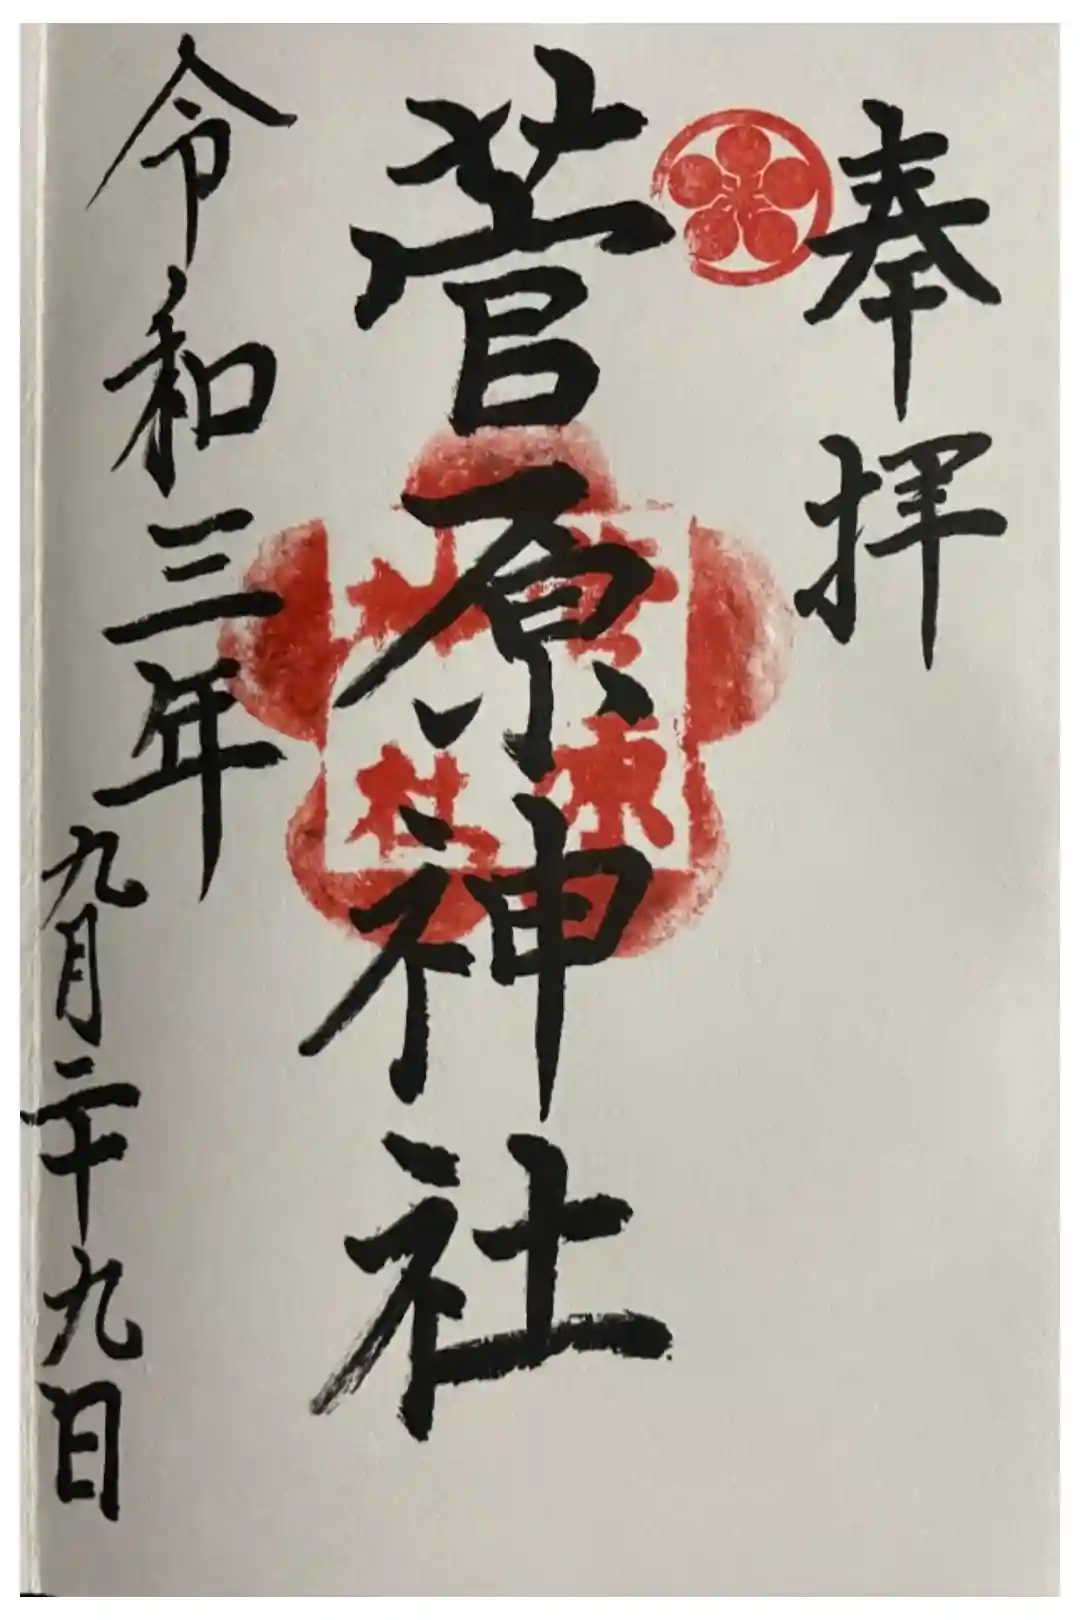 奉拝
菅原神社
菅原神社
令和三年九月二十九日